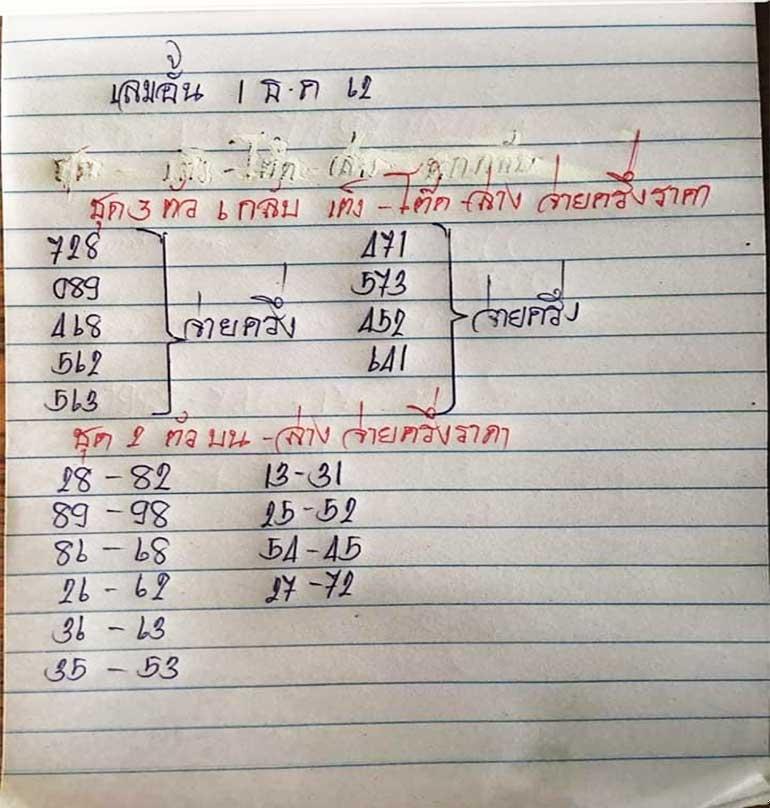 เลขอั้น 1 ธ.ค 62
ชุด 3 ตัว 6 กลับ เต็ง - โต๊ด - ล่าง จ่ายครึ่งราคา
728 471
089 573
468 จ่ายครึ่ง 452 จ่ายครึ่ง
562 641
563
ชุด 2 ตัว บน - ล่าง จ่ายครึ่งราคา
28 - 82 13 - 31
89 - 98 25 - 52
86 - 68 54 - 45
26 - 62 27 - 72
36 - 63
35 - 53